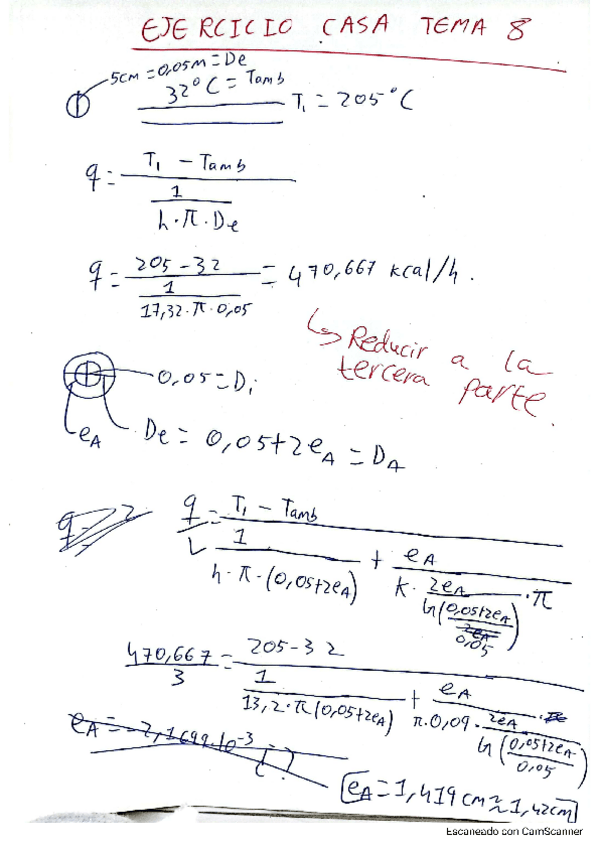 EJERCICIO CASA TEMA 8
5cm = 0,05m = De
32°C = Tamb
T₁ = 205°C
q = (T₁ - Tamb) / (1 / (h · π · De))
q = (205 - 32) / (1 / (17,32 · π · 0,05)) = 470,667 kcal/h.
↳ Reducir a la
tercera parte
0,05 = Di
eA
De = 0,05+2eA = DA
q/L = (T₁ - Tamb) / (1 / (h · π · (0,05+2eA)) + eA / (k · 2eA / ln((0,05+2eA) / 0,05) · π))
470,667 / 3 = (205 - 32) / (1 / (13,2 · π (0,05+2eA)) + eA / (π · 0,09 · 2eA / ln((0,05+2eA) / 0,05)))
eA = 1,419 cm ≈ 1,42cm
Escaneado con CamScanner